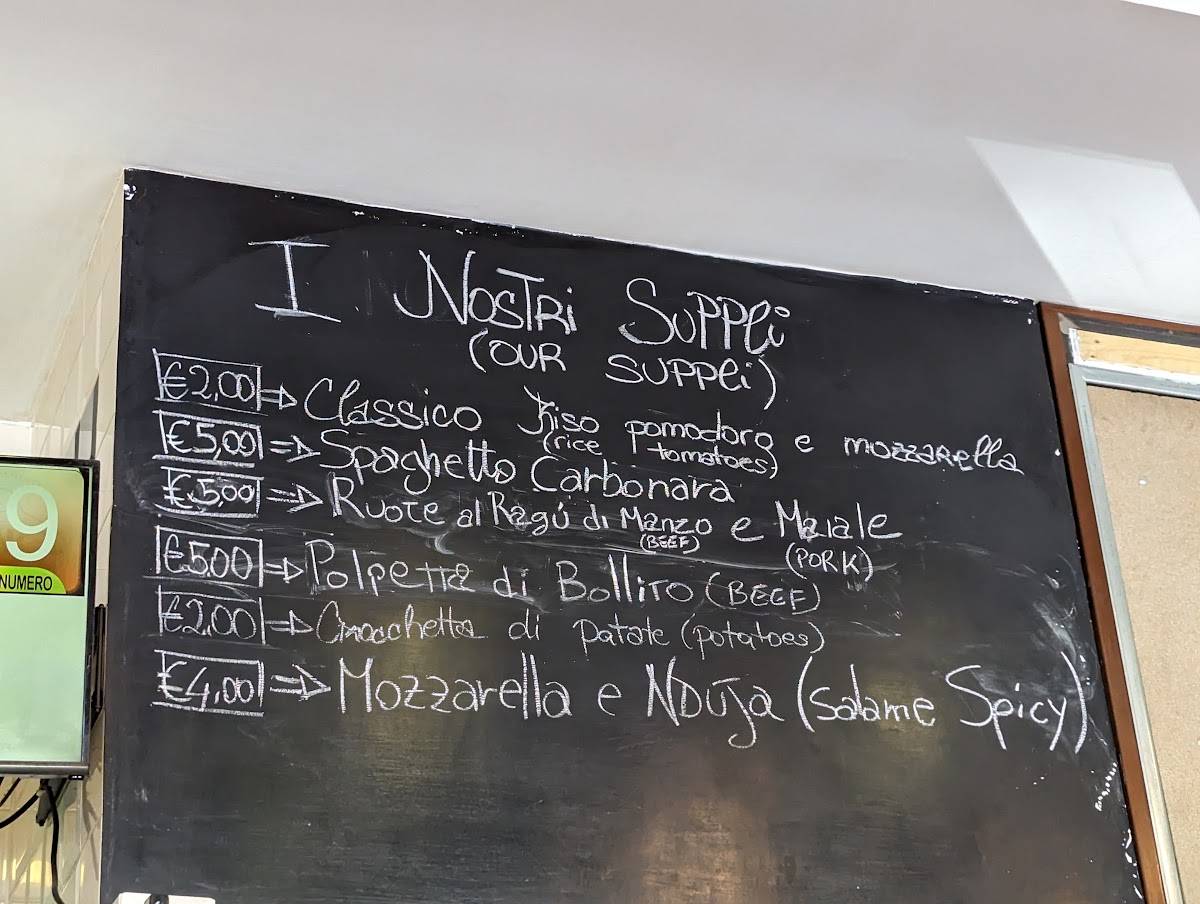 I NOSTRI SUPPLI
(OUR SUPPLI)
€2,00 ⇒ Classico Riso pomodoro e mozzarella
(rice tomatoes)
€5,00 ⇒ Spaghetto Carbonara
€5,00 ⇒ Ruote al Ragú di Manzo e Maiale
(BEEF) (PORK)
€5,00 ⇒ Polpetta di Bollito (BEEF)
€2,00 ⇒ Crocchetta di patate (potatoes)
€4,00 ⇒ Mozzarella e NDUJA (salame Spicy)
9
NUMERO